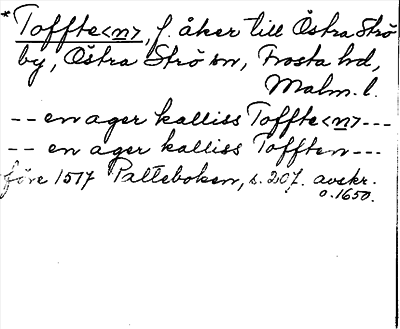 *Toffte<n>, f. åker till Östra Strö
by, Östra Strö sn, Frosta hd,
Malm. l.
-- en ager kalliss Toffte<n> ---
-- en ager kalliss Tofften ---
före 1517 Palteboken, s. 207. avskr.
o. 1650.